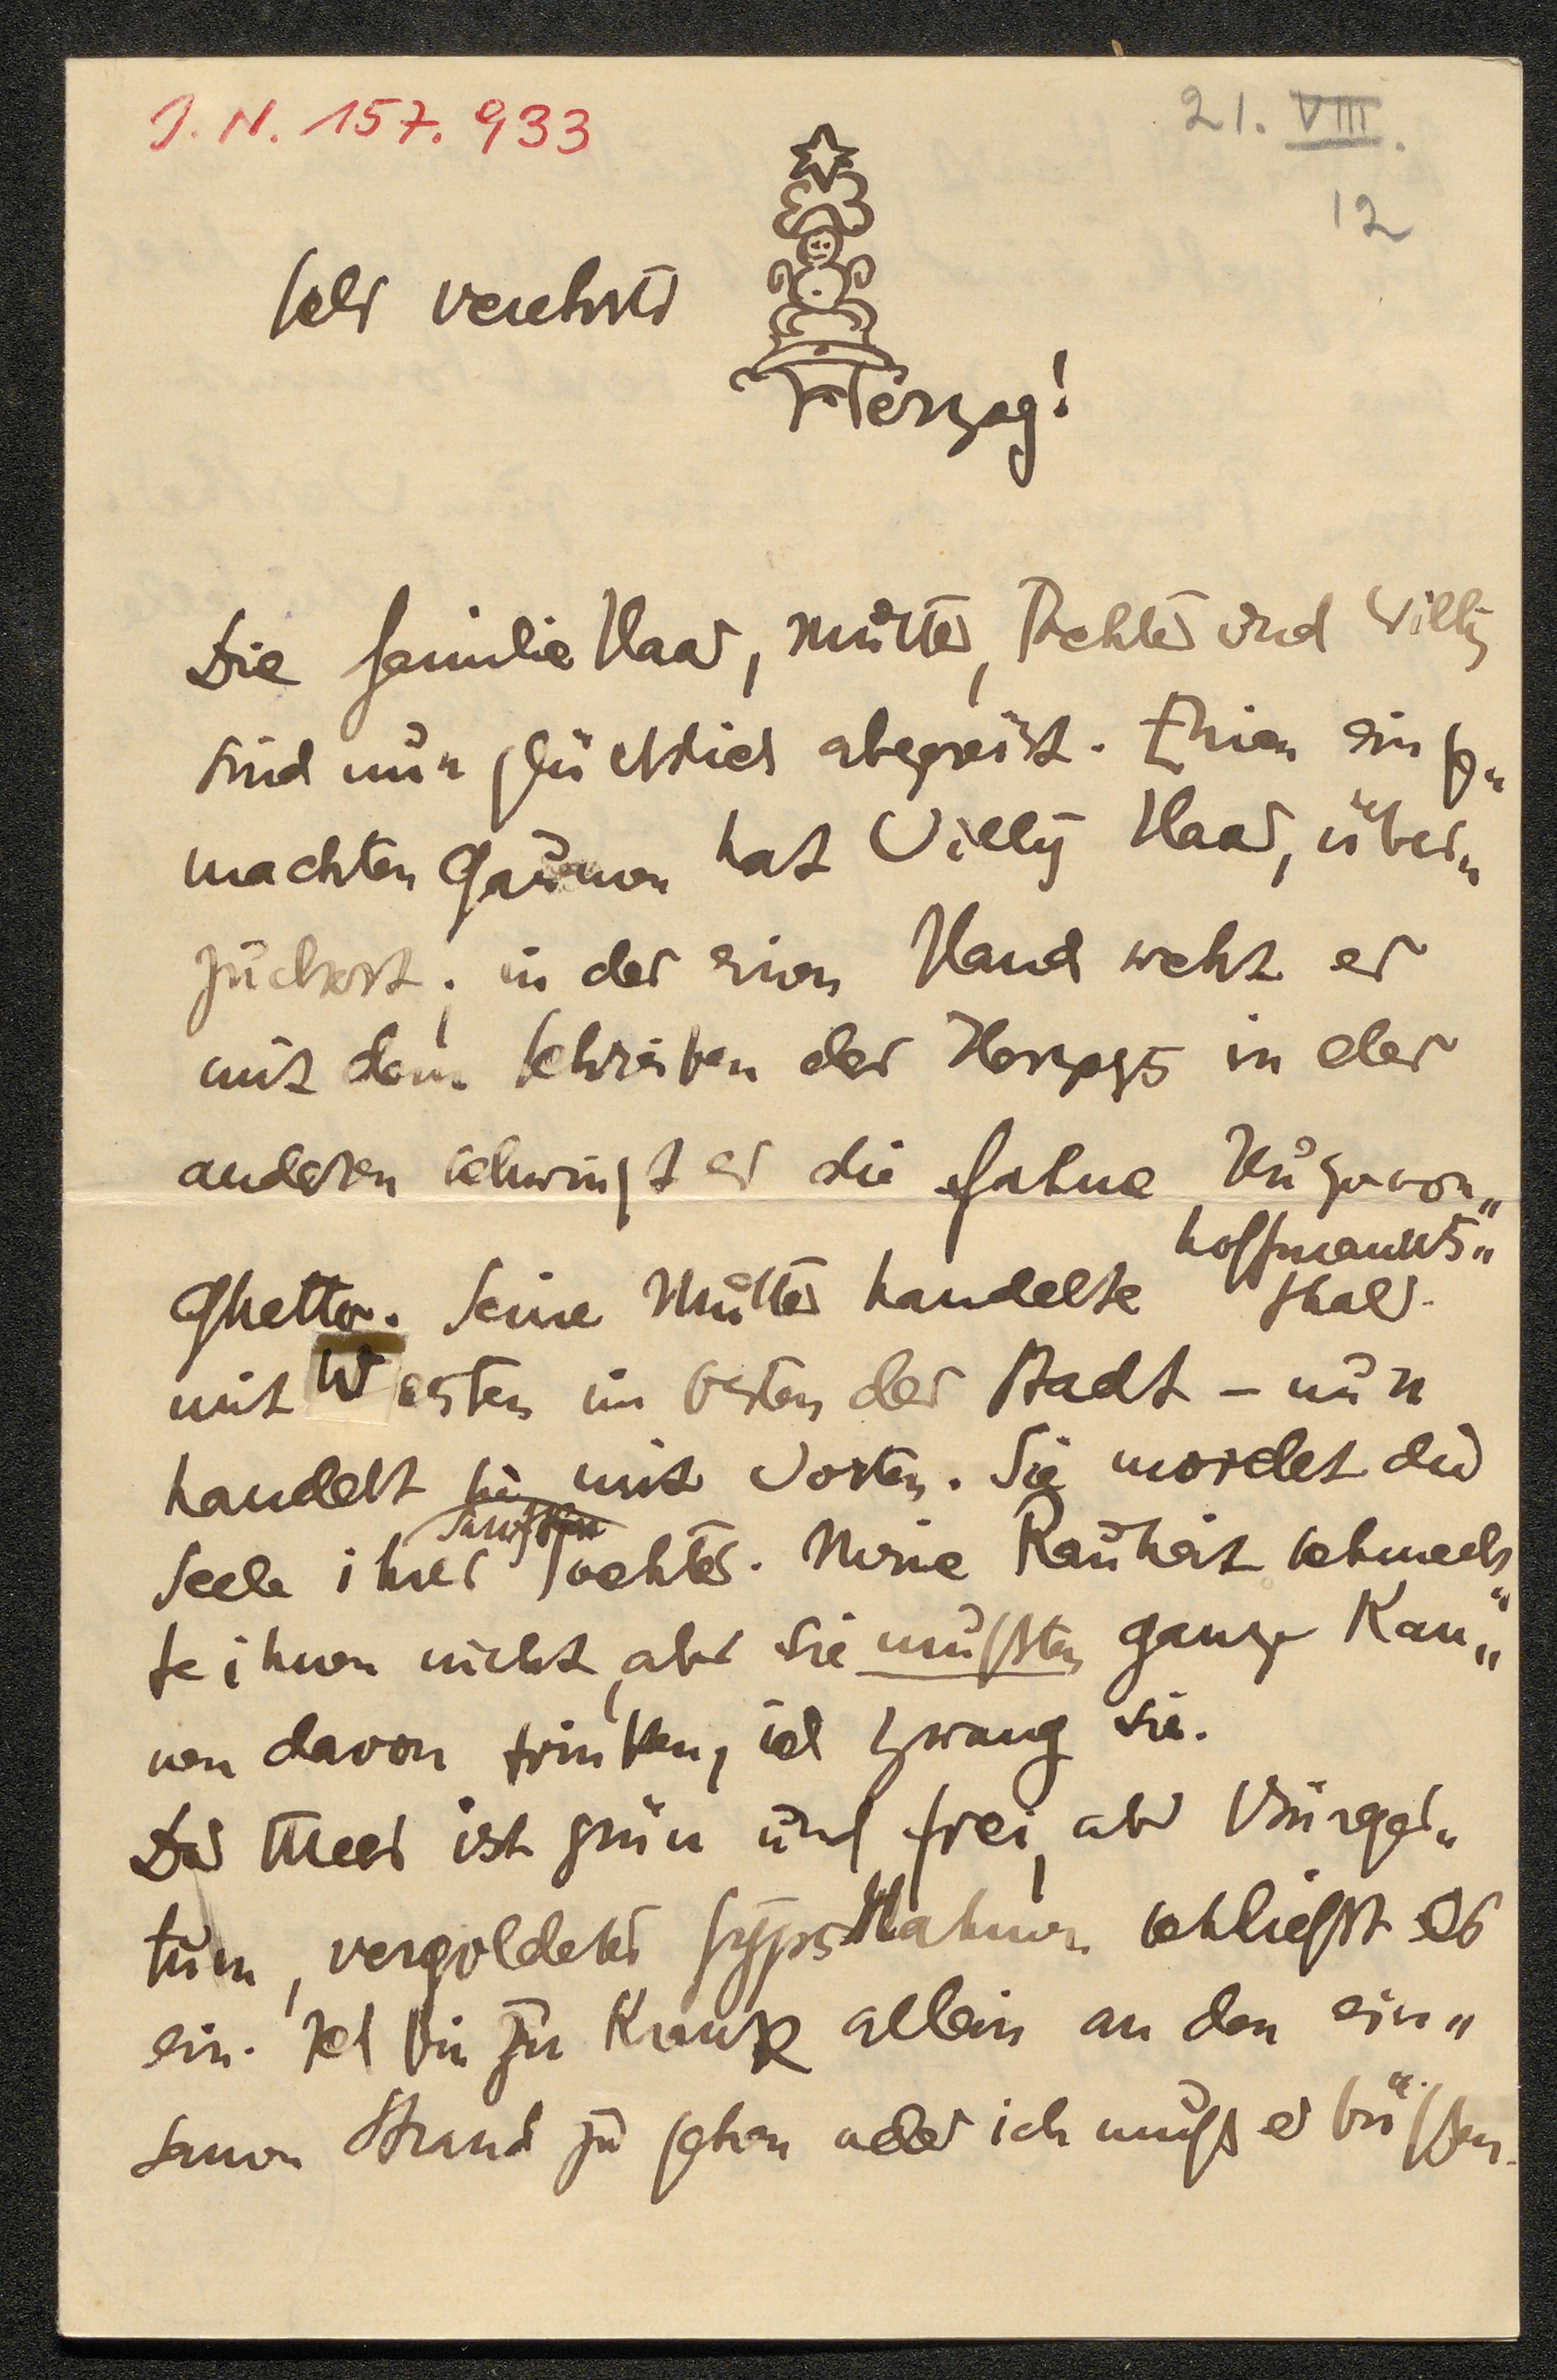 J. N. 157.933
21. VIII.
12
Sehr verehrter
Herzog!
Die Familie Haas, Mutter, Tochter und Willy
sind nun glücklich abgereist. Einen einge„
machten Gaumen hat Willy Haas, über„
zuckert; in der einen Hand weht er
mit dem Schreiben des Herzogs in der
anderen schwingt er die Fahne Hugovon„
hoffmanns„
thals.
Ghetto. Seine Mutter handelte
mit Westen im Osten der Stadt – nun
handelt sie mit Worten. Sie mordet die
sanften
Seele ihrer Tochter. Meine Rauheit schmeck„
te ihnen nicht, aber sie mußten ganze Kan„
nen davon trinken, ich zwang sie.
Das Meer ist grün und frei, aber Bürger„
tum, vergoldeter Gypsrahmen schließt es
ein. Ich bin zu krank allein an den ein„
samen Strand zu gehen oder ich muß es büßen.